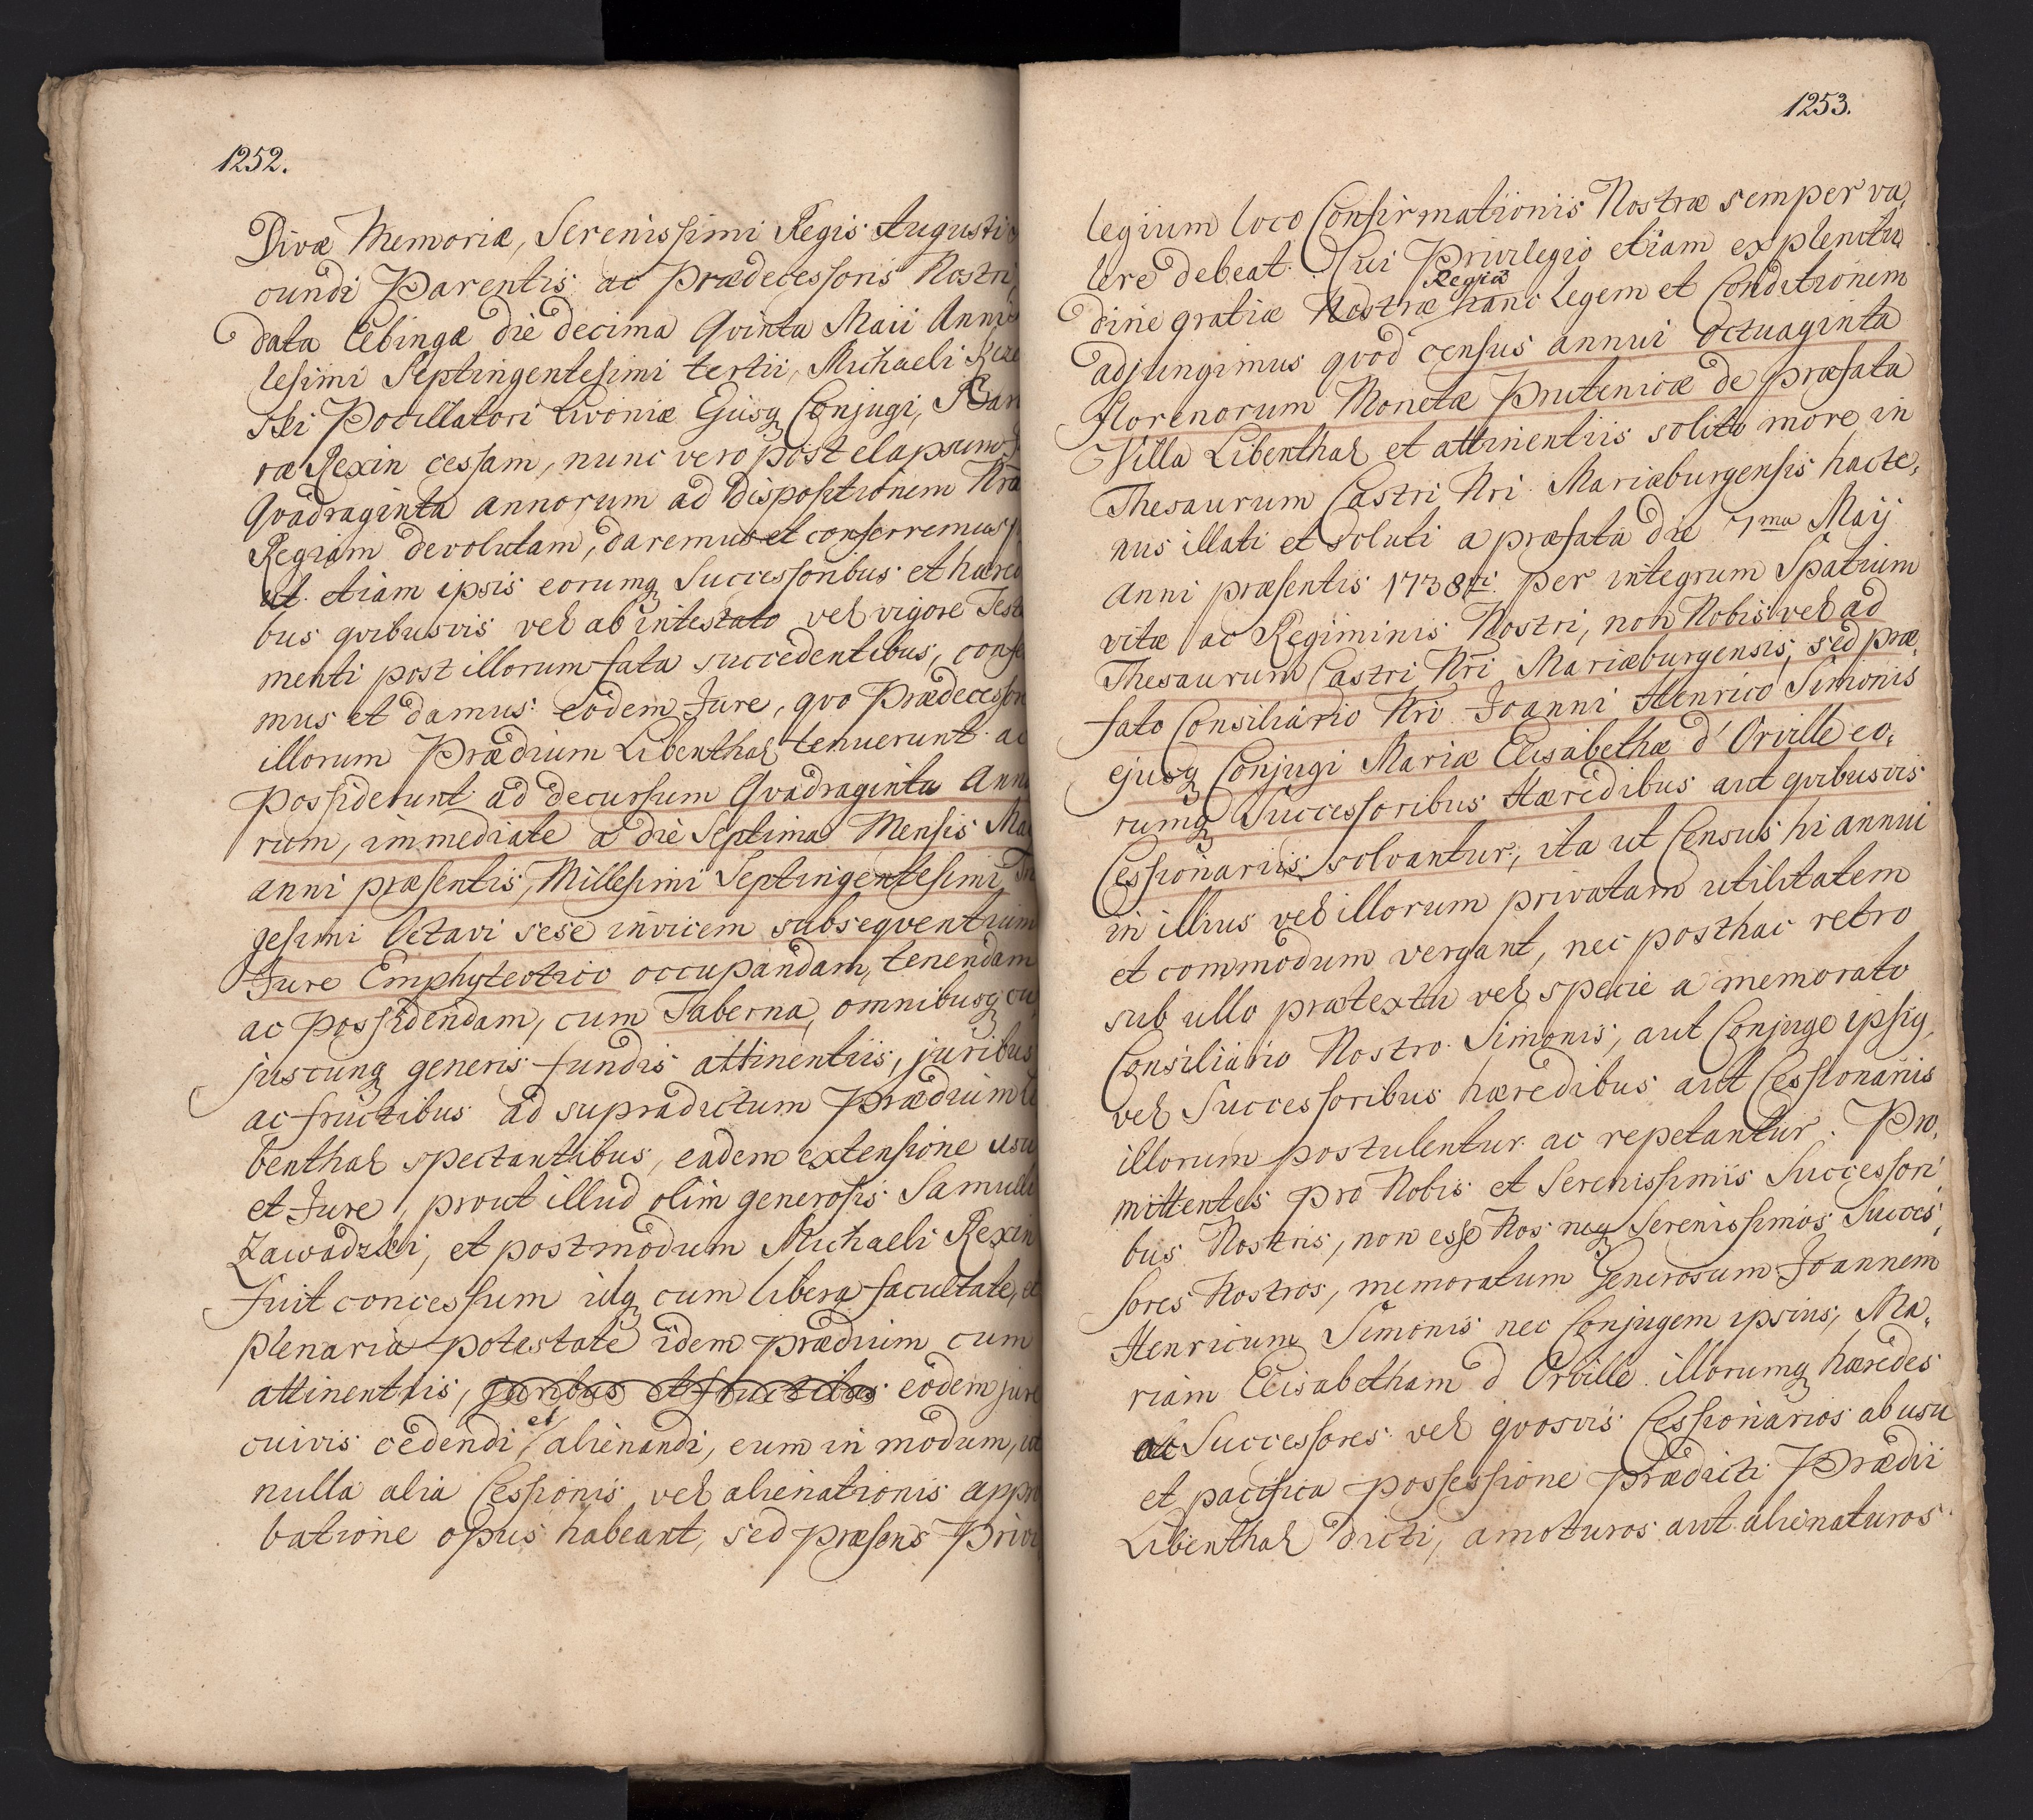 1252.
Divæ Memoriæ, Serenissimi Regis Augusti
cundi Parentis ac Prædecessoris Nostri,
data Elbingæ die decima Qvinta Maii Anni
lesimi Septingentesimi tertii, Michaeli
ski Pocillatori Livoniæ Ejusq Conjugi, Bar
ræ Rexin cessam, nunc vero post elapsum
Qvadraginta annorum ad dispositionem Nrā
Regiam devolutam, daremus et conferremus,
ut etiam ipsis eorumq Successoribus et hære
bus qvibusvis vel ab intestato vel vigore Testa
menti post illorum fata succedentibus, confe
mus et damus eodem Jure, qvo Prædecessor
illorum Prædium Libenthal tenuerunt ac
possiderunt ad decursum Qvadraginta Anno
rum, immediate a die Septima Mensis Ma
anni præsentis, Millesimi Septingentesimi Tri
gesimi Octavi sese invicem subseqventium
Jure Emphyteotico occupandam, tenendam
ac possidendam, cum Taberna, omnibusq cu,
juscunq generis fundis attinentiis, juribus
ac fructibus ad supradictum Prædium Li
benthal spectantibus, eadem extensione usu
et Jure, prout illud olim generosis Samueli
Zawadzki, et postmodum Michaeli Rexin
fuit concessum idq cum libera facultate, et
plenaria potestate idem prædium cum
attinentiis, juribus et fructibus eodem jure
cuivis cedendi et alienandi, eum in modum, ut
nulla alia Cessionis vel alienationis appro
batione opus habeant, sed præsens Privi
1253.
legium loco Confirmationis Nostræ semper va,
lere debeat. Cui Privilegio etiam ex plenitu
dine gratiæ Nostræ Regiæ hanc legem et Conditionem
adjungimus qvod census annui Octuaginta
Florenorum Monetæ Prutenicæ de præfata
Villa Libenthal et attinentiis solito more in
Thesaurum Castri Nri Mariæburgensis hacte,
nus illati et soluti a præfata die 7ma Maij
anni præsentis 1738vi per integrum Spatium
vitæ ac Regiminis Nostri, non Nobis vel ad
Thesaurum Castri Nri Mariæburgensis, sed præ,
fato Consiliario Nro Joanni Henrico Simonis
ejusq Conjugi Mariæ Elisabethæ d'Orville eo,
rumq Successoribus Hæredibus aut qvibusvis
Cessionariis solvantur, ita ut Census hi annui
in illius vel illorum privatam utilitatem
et commodum vergant, nec posthac retro
sub ullo prætextu vel specie a memorato
Consiliario Nostro Simonis, aut Conjuge ipsig,
vel Successoribus hæredibus aut Cessionariis
illorum postulentur ac repetantur. Pro,
mittentes pro Nobis et Serenissimis Successori
bus Nostris, non esse Nos neq Serenissimos Succes,
sores Nostros, memoratum Generosum Joannem
Henricum Simonis nec Conjugem ipsius, Ma,
riam Elisabetham d Orville illorumq hæredes
ac Successores vel qvosvis Cessionarios ab usu
et pacifica possessione prædicti Prædii
Libenthal dicti, amoturos aut alienaturos